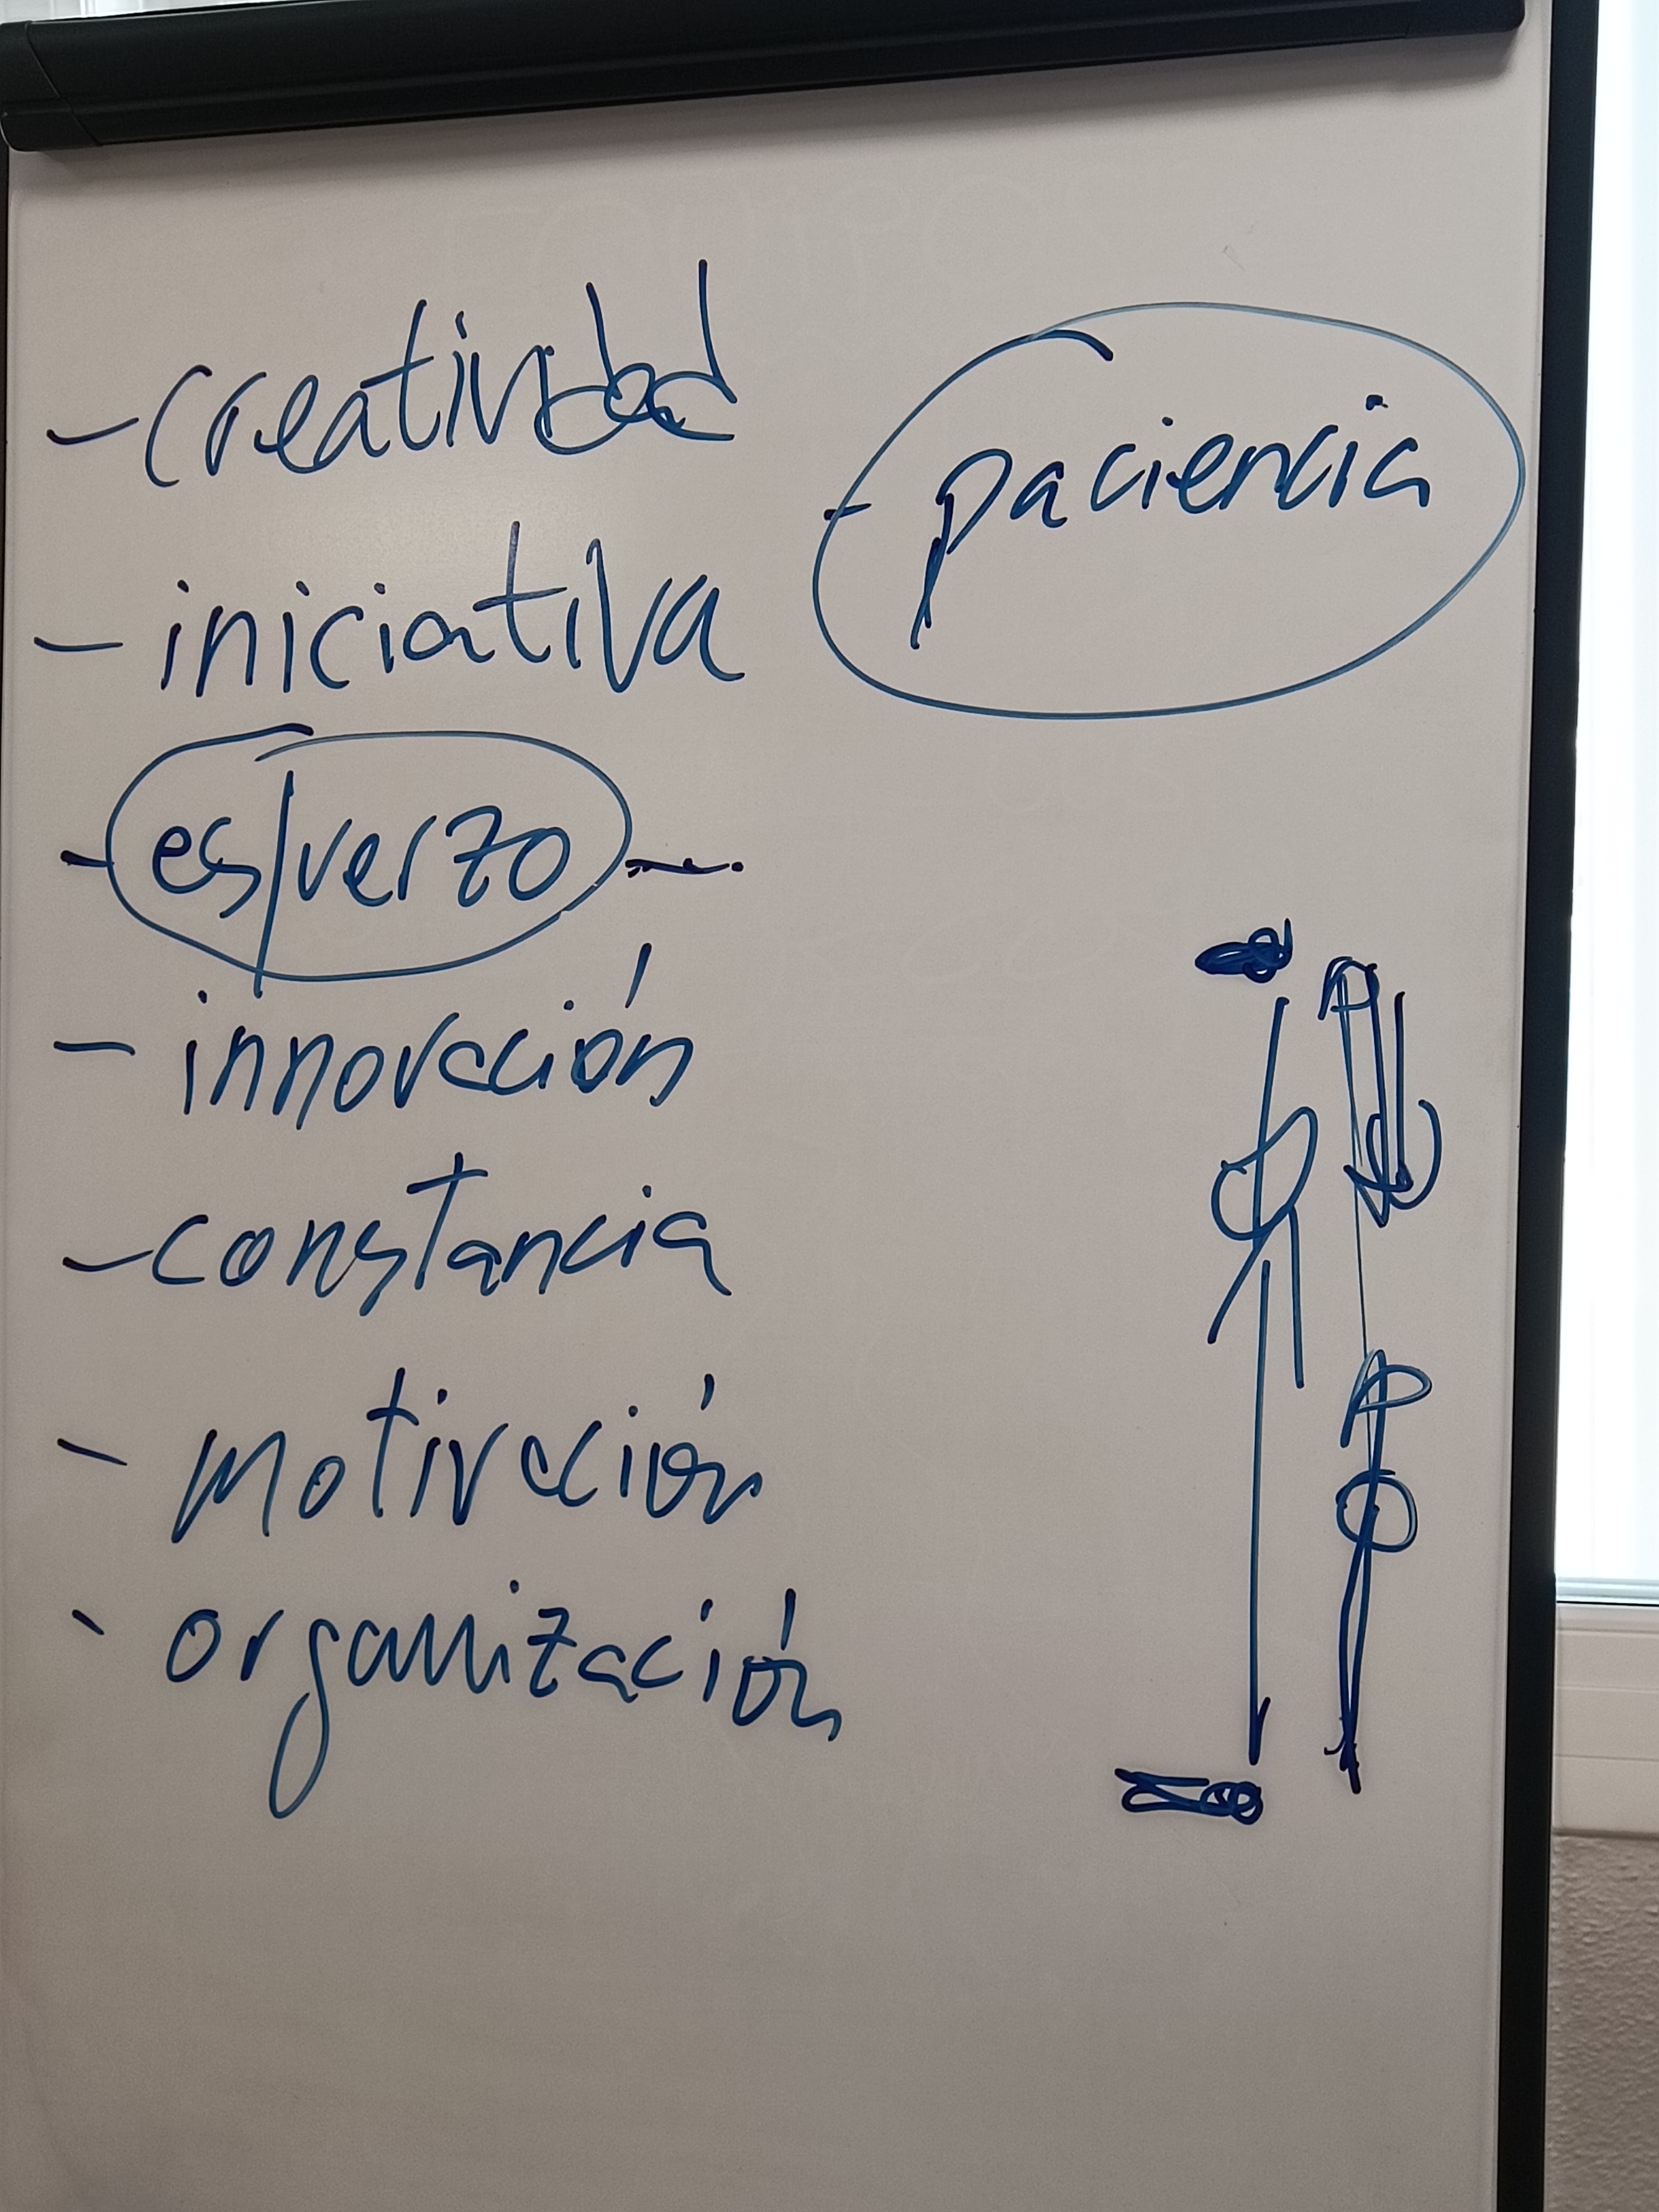 - creatividad
- iniciativa
- esfuerzo -
- innovación
- constancia
- motivación
- organización
- paciencia